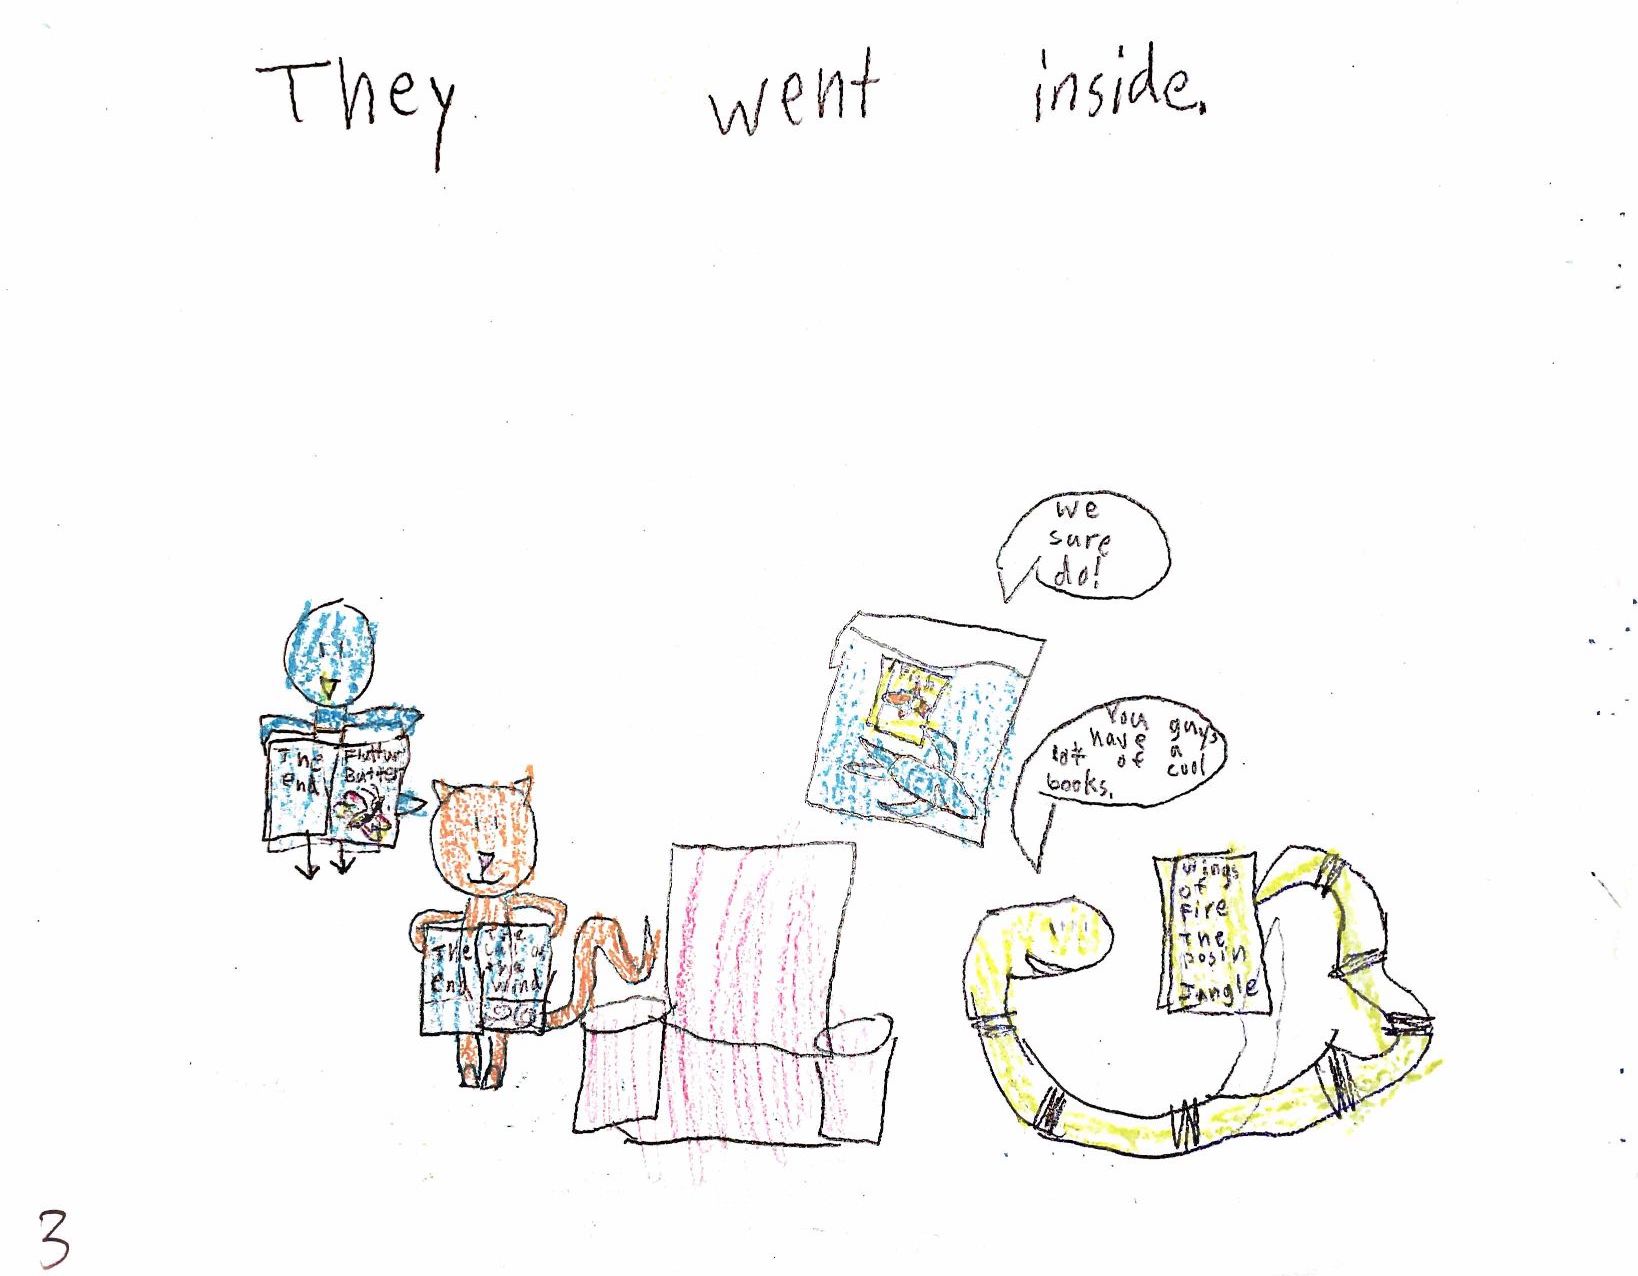 They went inside.
We
sure
do!
You guys
have a
lot of cool
books.
The
end
Fluttur
Butter
The
end
The
the
wind
wings
of
fire
The
posin
Jungle
3